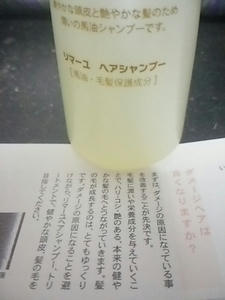 やかな頭皮と艶やかな髪のため
潤いの馬油シャンプーです。
リマーユ ヘアシャンプー
[馬油・毛髪保護成分]
ダメージヘアは
良くなりますか？
まずは、ダメージの原因になっている事
を改善することが先決です。
毛髪に潤いや栄養成分を与えていくこ
とで、ハリ・コシ・艶のある、本来の健や
かな髪の毛へとつながっていきます。髪
の毛が成長するのは、とてもゆっくり
ですから、ダメージの原因になることを避
けながら、リマーユヘアシャンプー、トリ
ートメントで、健やかな頭皮、髪の毛を
目指してください。